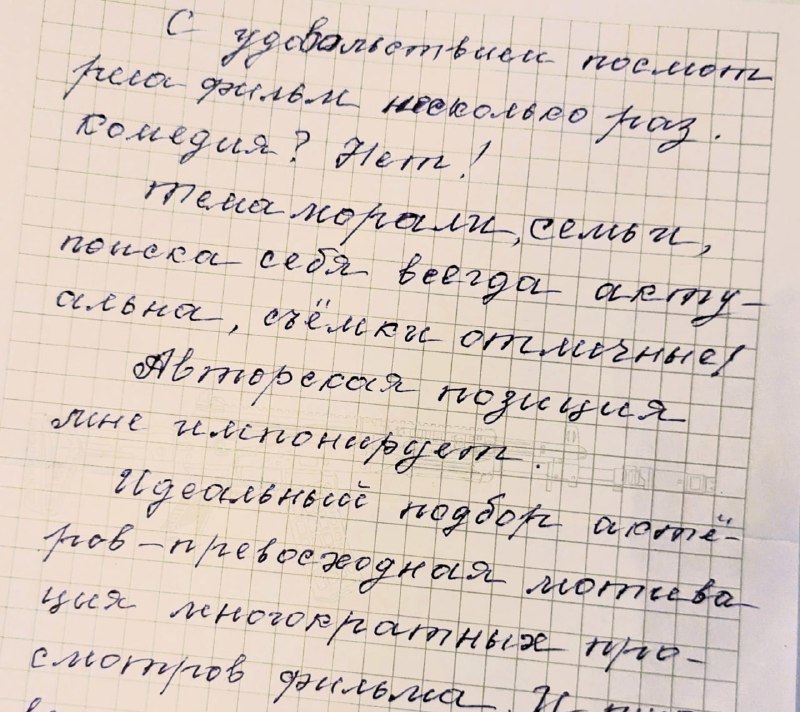 С удовольствием посмот
рела фильм несколько раз.
Комедия? Нет!
Тема морали, семьи,
поиска себя всегда акту-
альна, съёмки отличные!
Авторская позиция
мне импонирует.
Идеальный подбор актё-
ров - превосходная мотива
ция многократных про-
смотров фильма. И